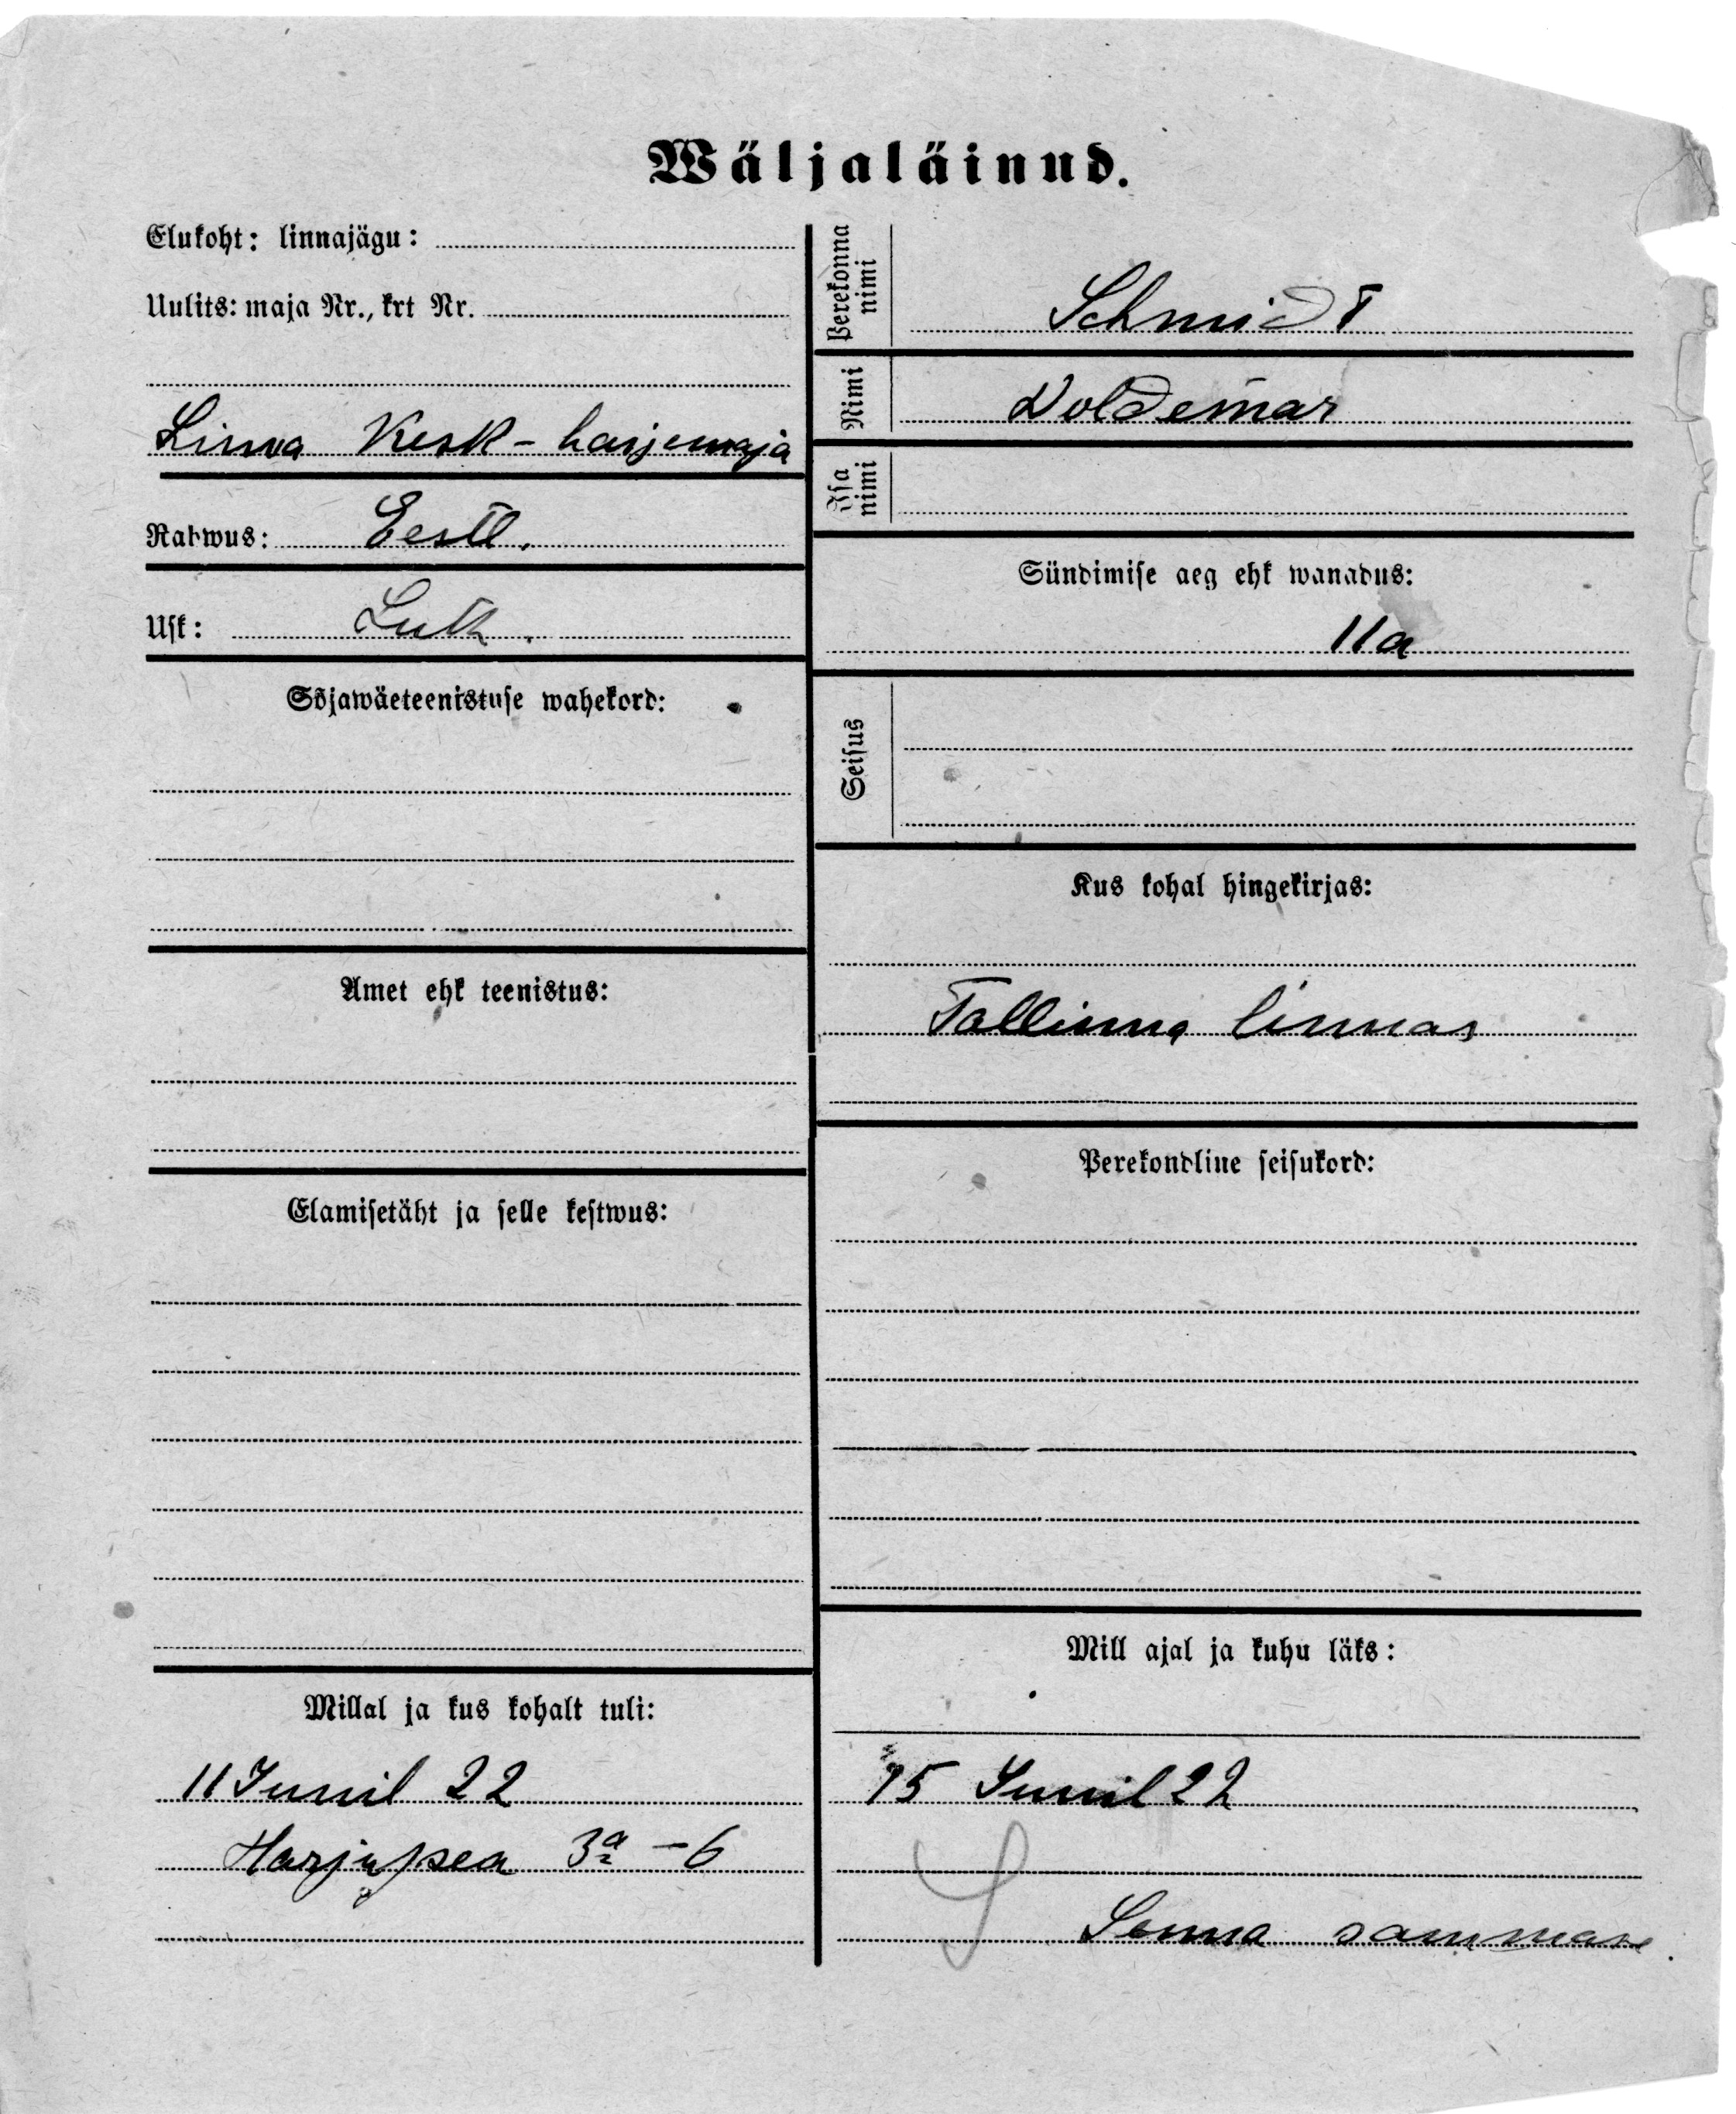 Wäljaläinud.
Elukoht: linnajägu:
Uulits: maja Nr., krt Nr.
Linna Kesk-haigemaja
Rahwus: Eestl.
Usk: Luth.
Sõjawäeteenistuse wahekord:
Amet ehk teenistus:
Elamisetäht ja selle kestwus:
Millal ja kus kohalt tuli:
11 Junil 22
Harjupea 3a - 6
Perekonna nimi Schmidt
Nimi Voldemar
Isa nimi
Sündimise aeg ehk wanadus:
11a
Seisus
Kus kohal hingekirjas:
Tallinna linnas
Perekondline seisukord:
Mill ajal ja kuhu läks:
15 Junil 22
Senna samma